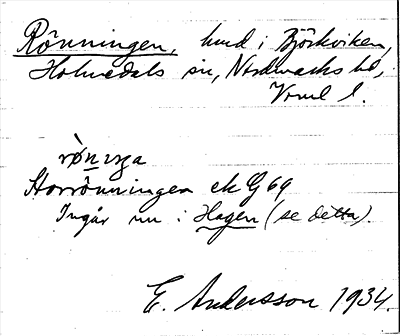 Rönningen, hmd i Björkviken,
Holmedals sn, Nordmarks hd,
Vrml l.
rò̀n ıŋa
Storrönningen ek G 69
Ingår nu i Hagen (se detta).
E. Andersson 1934.